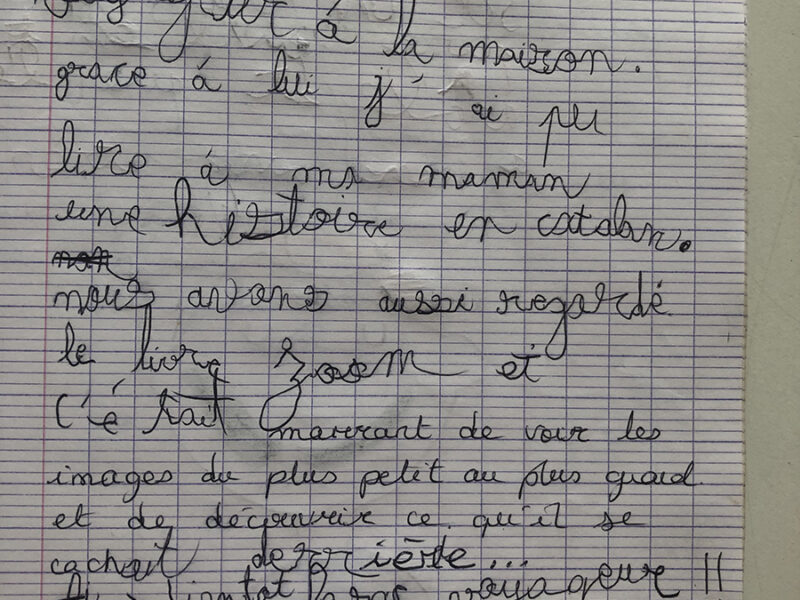 à la maison.
grace á lui j'ai pu
lire á ma maman
une histoire en catalan.
nous avons aussi regardé
le livre zoom et
C'était marrant de voir les
images du plus petit au plus grand
et de découvrir ce qu'il se
cachait derrière...
voyageur !!